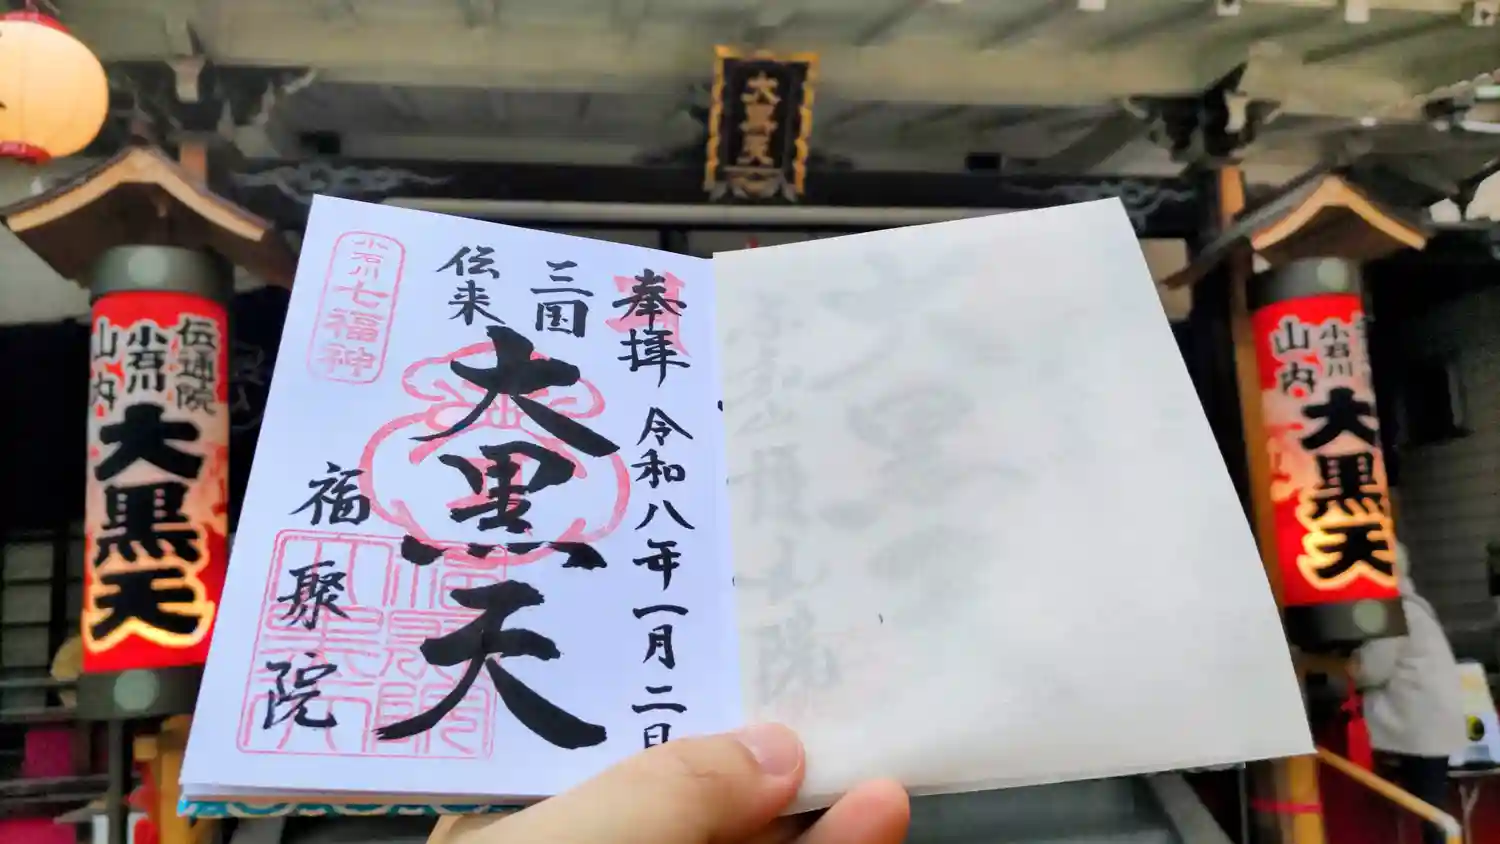 大黒天
奉拝
令和八年一月二日
三国
伝来
大黒天
福聚院
小石川
七福神
伝通院
小石川
山内
大黒天
小石川
山内
大黒天